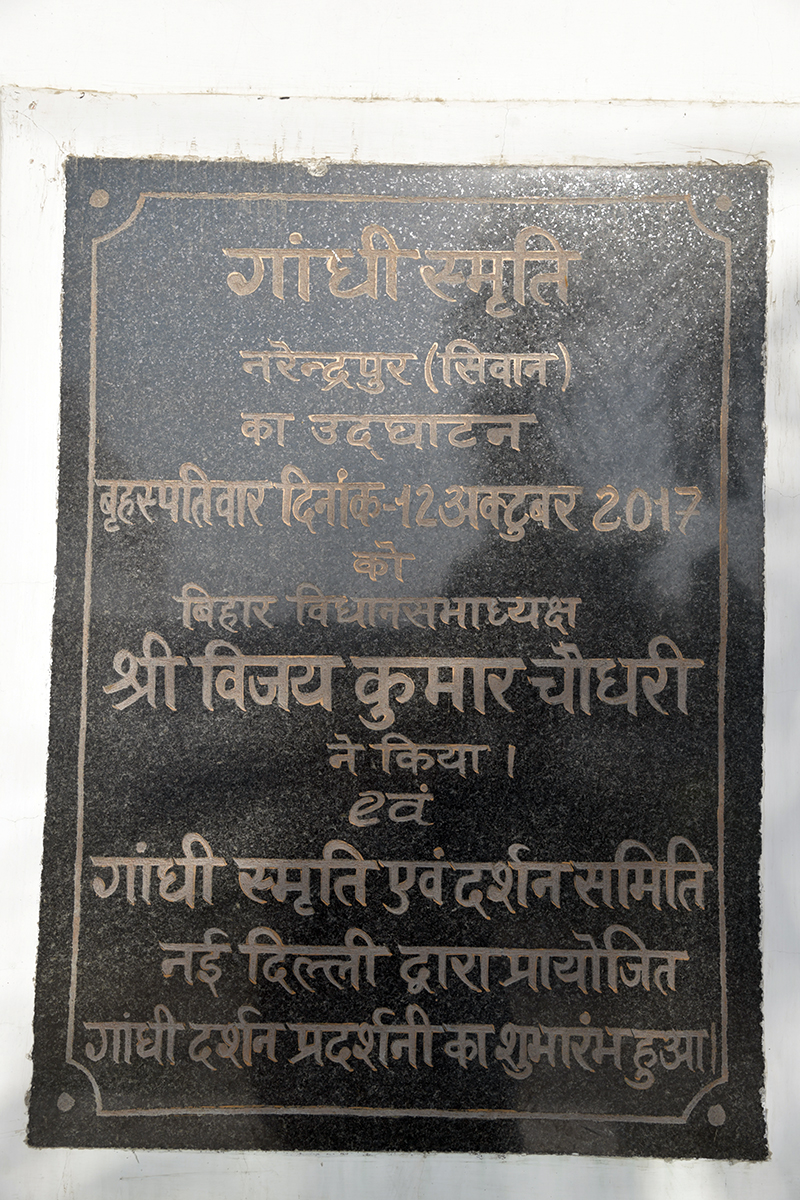 गांधी स्मृति
नरेन्द्रपुर (सिवान)
का उद्घाटन
बृहस्पतिवार दिनांक-12 अक्टुबर 2017
को
बिहार विधानसभाध्यक्ष
श्री विजय कुमार चौधरी
ने किया ।
एवं
गांधी स्मृति एवं दर्शन समिति
नई दिल्ली द्वारा प्रायोजित
गांधी दर्शन प्रदर्शनी का शुभारंभ हुआ।